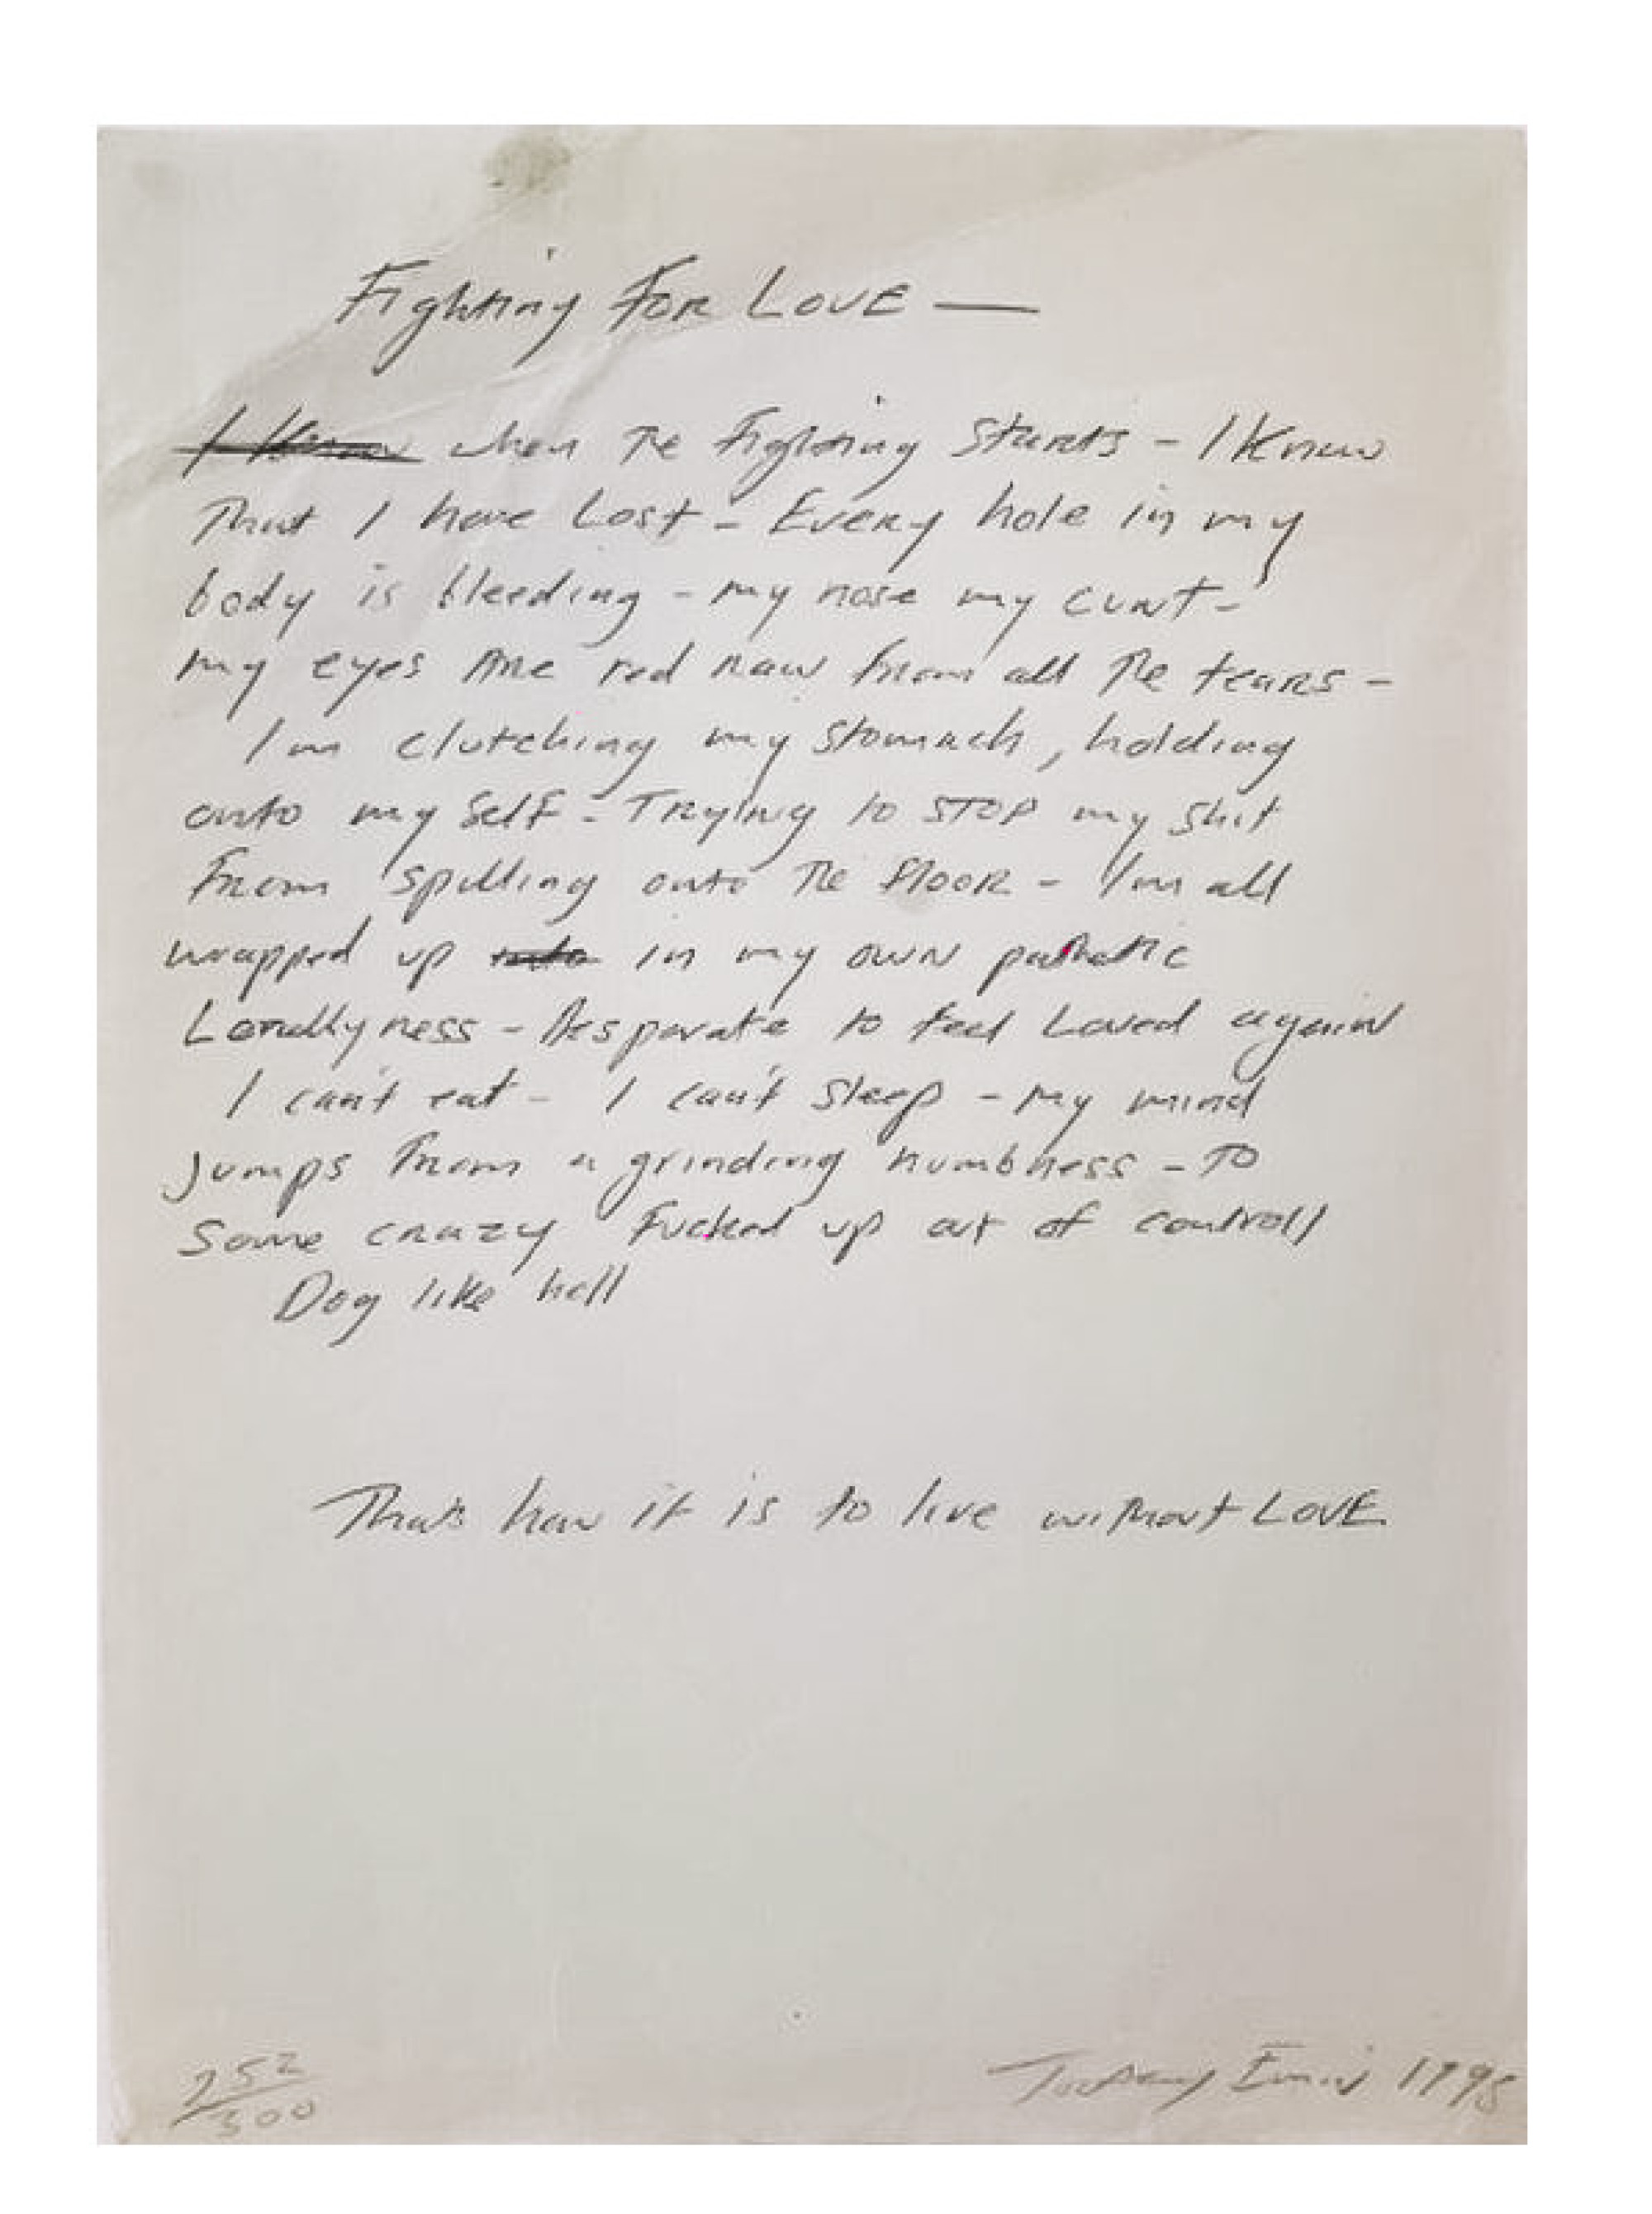 Fighting For LOVE —
I Know when The Fighting Starts - I Know
That I have Lost - Every hole in my
body is bleeding - my nose my cunt -
my eyes Are red raw From all The tears -
Im clutching my stomach, holding
onto my Self - Trying to STOP my shit
From spilling onto The Floor - I'm all
wrapped up into in my own pathetic
Lonellyness - Desparate to feel Loved again
I can't eat - I can't Sleep - My mind
jumps From a grinding numbness - TO
Some crazy Fucked up out of controll
Dog like hell
That's how it is to live without LOVE
252/300
Tracey Emin 1998